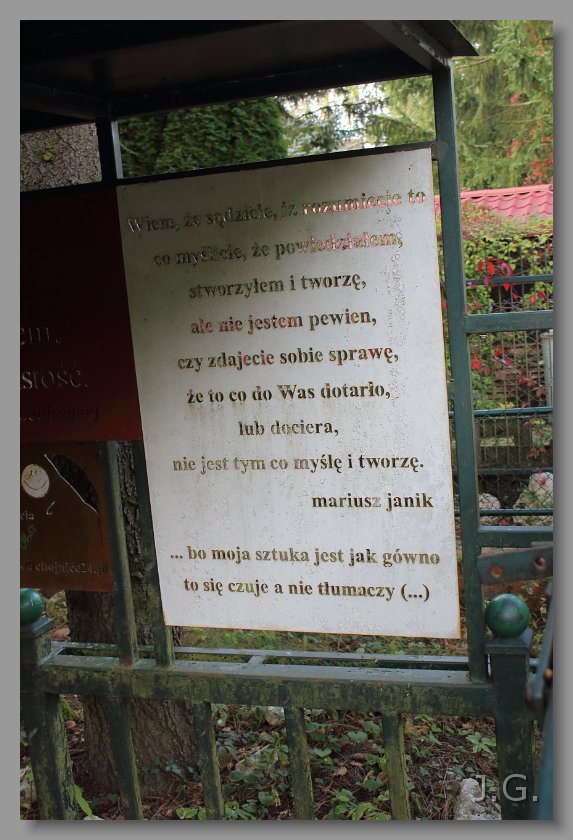 Wiem, że sądzicie, iż rozumiecie to
co myślicie, że powiedziałem,
stworzyłem i tworzę,
ale nie jestem pewien,
czy zdajecie sobie sprawę,
że to co do Was dotarło,
lub dociera,
nie jest tym co myślę i tworzę.
mariusz janik
... bo moja sztuka jest jak gówno
to się czuje a nie tłumaczy (...)
chojnice24.pl
J.G.